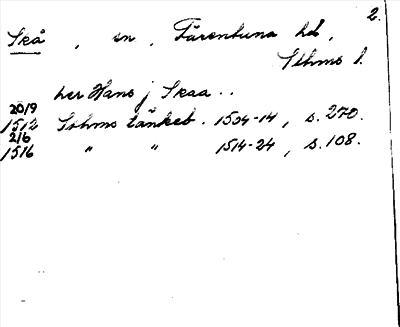 2.
Skå, sn, Färentuna hd,
Sthms l.
her Hans j Skaa..
20/9
1512 Sthms tänkeb. 1504-14, s. 270.
2/6
1516 " " 1514-24, s. 108.